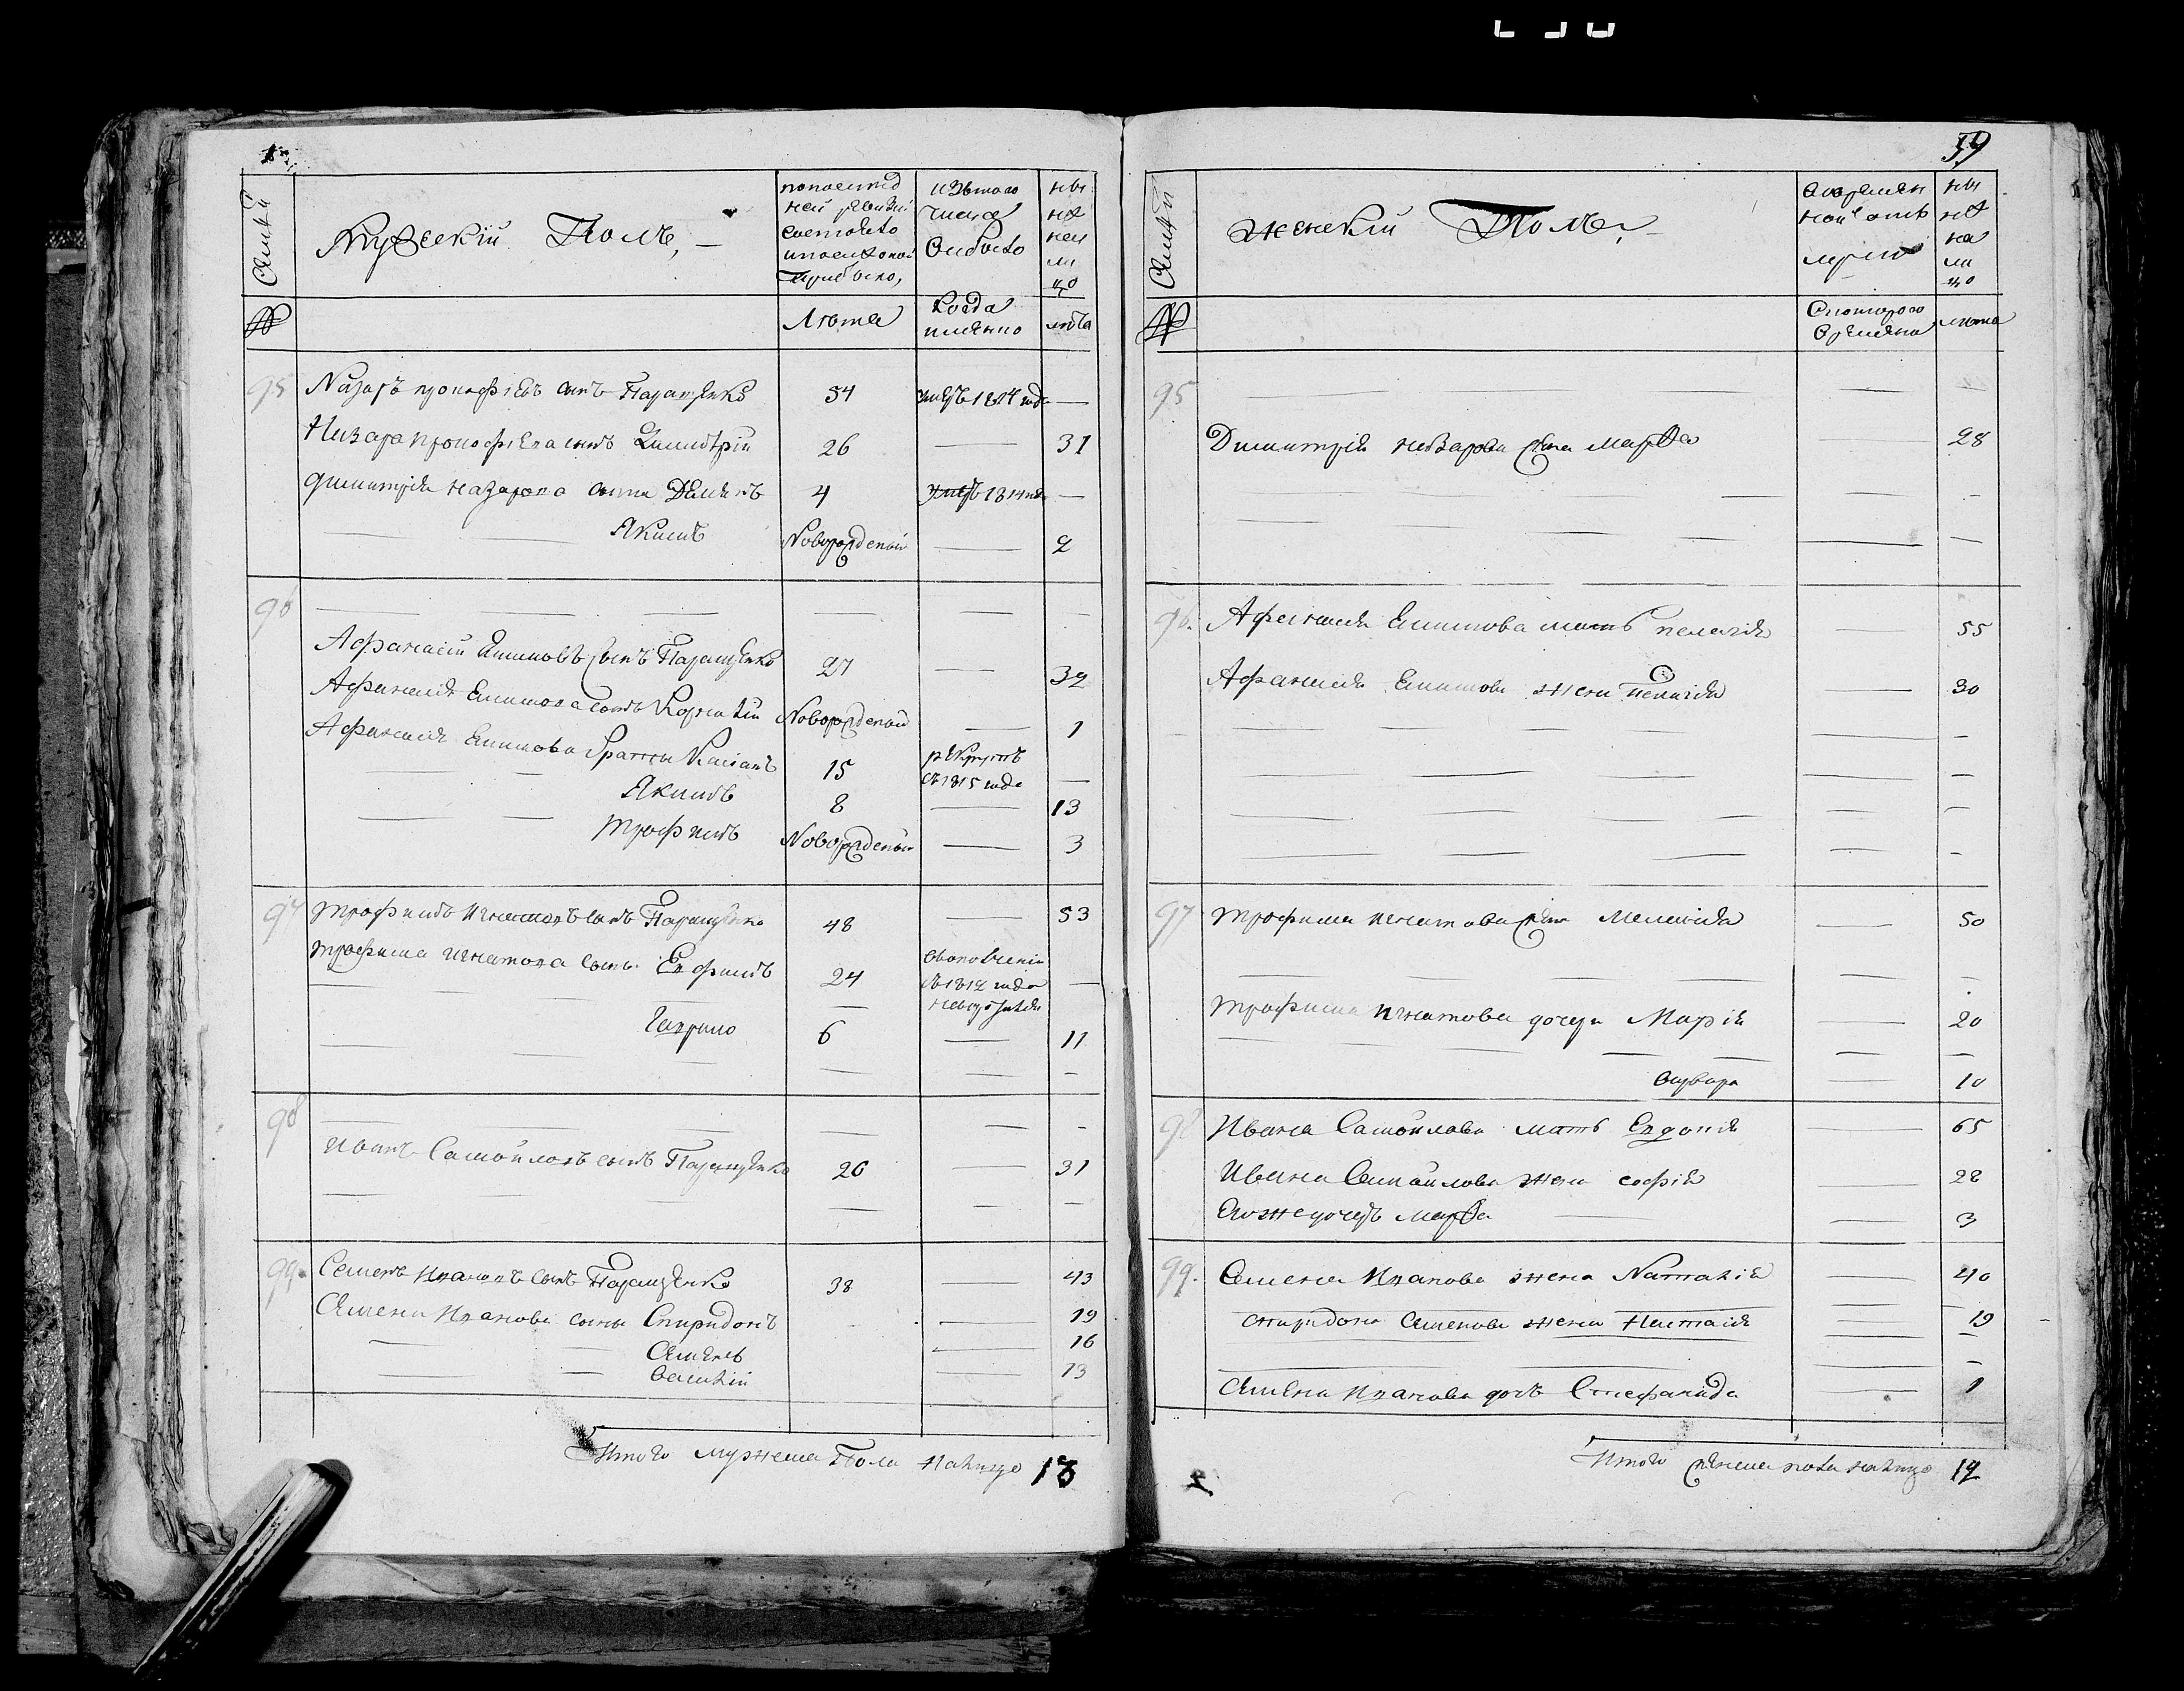 59
Семьи
Мужеский Полъ,
попослед
ней ревизіи
состояло
и после оной
Прибыло,
изътого
числа
Выбыло
ны
не
нали
цо
№
Лѣта
Когда
имянно
лѣта
95 Назаръ прокофіевъ сынъ Паращенко 54 умеръ 1814 года —
Назара прокофіева сынъ Димитрій 26 — 31
Димитрія назарова сынъ Демянъ 4 умеръ 1814 года —
Якимъ Новорожденый — 2
96
Афанасій Якимовъ сынъ Паращенко 27 — 32
Афанасія Екимова сынъ Корнилій Новорожденый — 1
Афанасія Екимова братья Касіанъ 15 рекрутъ
съ 1815 года —
Якимъ 8 — 13
трофимъ Новорожденый — 3
97 трофимъ игнатовъ сынъ Паращенко 48 — 53
трофима игнатова сыны Ефимъ 24 въополченіи
съ 1812 года —
невозвратился
Гаврило 6 — 11
98
иванъ Самойловъ сынъ Паращенко 26 — 31
99. Семенъ ивановъ сынъ Паращенко 38 — 43
Семена иванова сыны Спиридонъ — 19
Семенъ — 16
василій — 13
Итого мужеска Пола налицо 18
Семьи
женскій Полъ,
Вовремен
ной отлу
ны
не
на
ли
цо
№
Скотораго
Времяни
лѣта
95
Димитрія назарова жена Марфа 28
96. Афанасія Екимова мать пелагія — 55
Афанасія Екимова жена пелагія — 30
97 трофима игнатова жена Меланія — 50
трофима игнатова дочери Марія — 20
варвара — 10
98 Ивана Самойлова мать Евдокія — 65
Ивана Самойлова жена софія — 28
Егоже дочерь Марфа — 3
99. Семена Иванова жена Наталія — 40
спиридона Семенова жена Настасія — 19
Семена Иванова дочь Стефанида — 1
Итого женска пола налицо 12